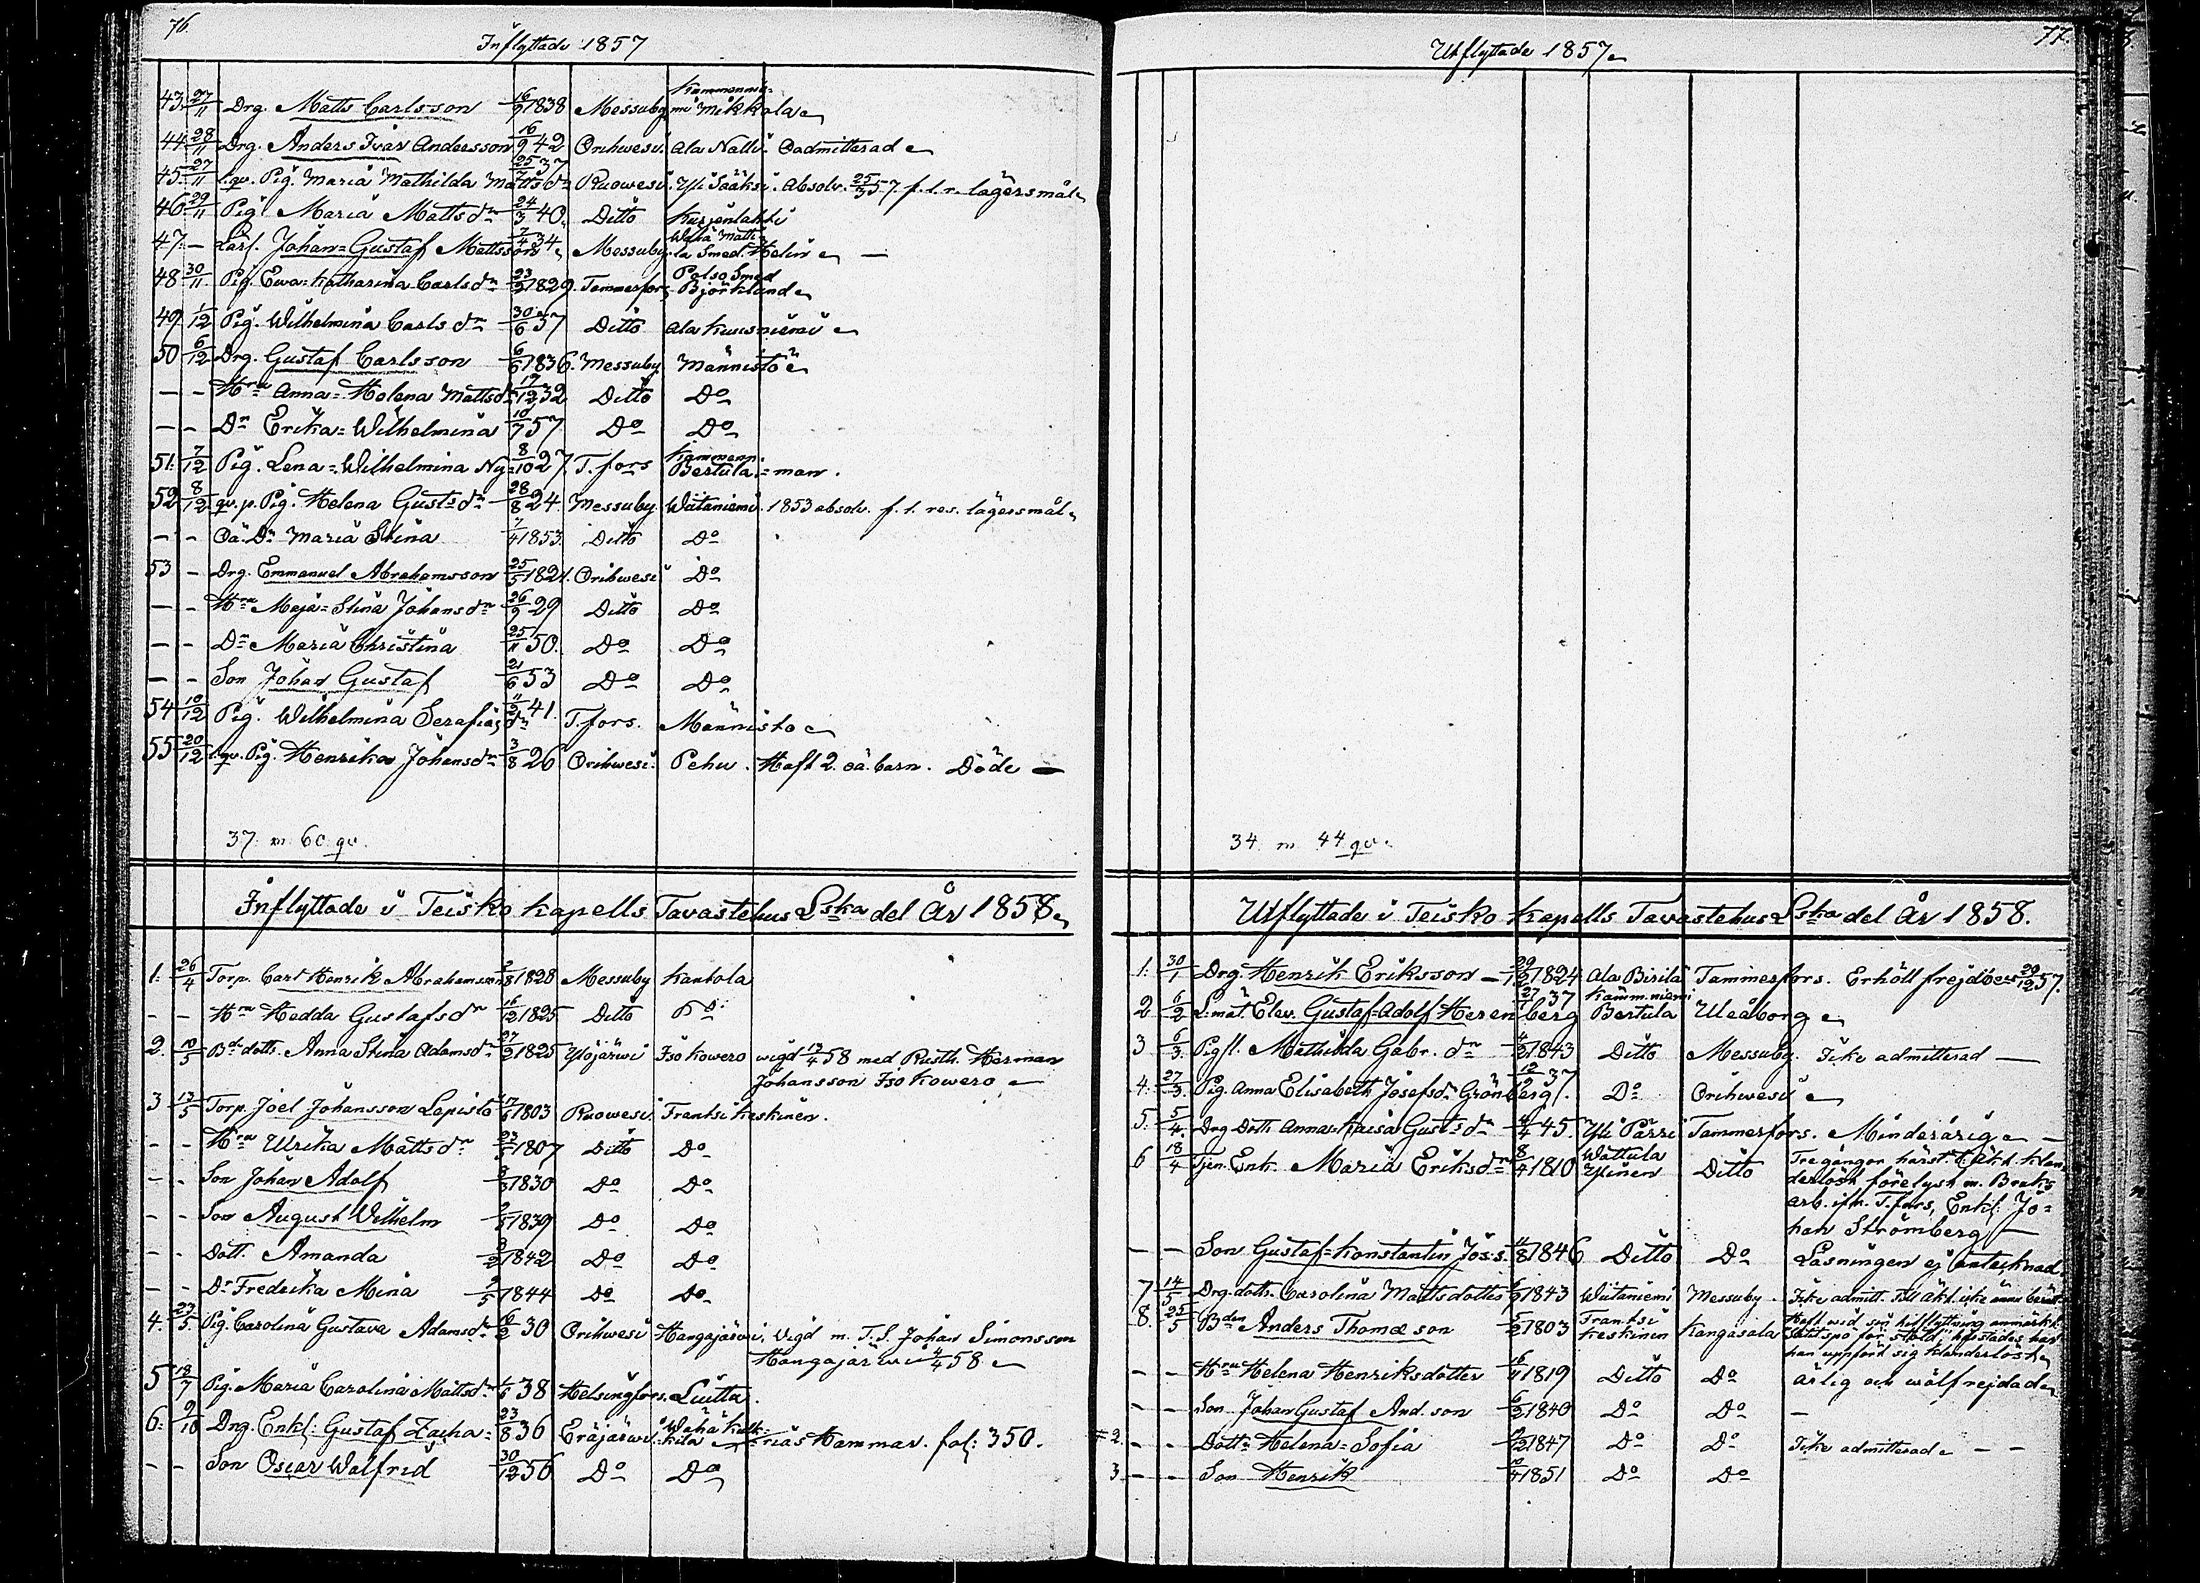 76.
Inflyttade 1857
43. 27/11 Drg. Matts Carlsson 16/9 1838 Messuby Kammenniemi Mikkola
44. 28/11 Drg. Anders Ivar Andersson 16/9 42 Orihwesi. Ala Natti. Oadmitterad
45. 27/11 l.qv. Pig. Maria Mathilda Mattsdr 25/7 37 Ruowesi. Yli Sääksi. Absolv. 25/3 57. f. l. r. lägersmål
46. 29/11 Pig. Maria Mattsdr 24/3 40. Ditto Kurjenlahti
47. – Lärl. Johan=Gustaf Mattsson 7/4 34. Messuby Waha Mattila Smed. Helin –
48 30/11 Pig. Ewa=Katharina Carlsdr 23/2 1829. Tammerfors Polso Smed Björklund
49 1/12 Pig. Wilhelmina Carlsdr 30/6 37 Ditto Ala Kuusniemi
50 6/12 Drg. Gustaf Carlsson 6/6 1836. Messuby Männistö
– – Hru Anna=Helena Mattsdr 19/12 32 Ditto Do
– – Dr Erika=Wilhelmina 10/7 57 Do Do
51. 7/12 Pig. Lena=Wilhelmina Ny= 8/10 27. T.fors Kammenn. Bertula =man.
52 8/12 qv.p. Pig. Helena Gustsdr 28/8 24 Messuby. Wiitaniemi. 1853 absolv. f. 1. res. lägersmål
– – Oä. Dr Maria Stina 7/4 1853. Ditto Do
53 – Drg. Emmanuel Abrahamsson 25/5 1821. Orihwesi Do
– – Hru Maja=Stina Johansdr 26/9 29 Ditto Do
– – Dr Maria Christina 25/11 50. Do Do
– – Son Johan Gustaf 21/6 53 Do Do
54 10/12 Pig. Wilhelmina Serafiasdr 11/2 41. T.fors. Männistö
55 20/12 l.qv. Pig. Henrika Johansdr 3/8 26 Orihwesi. Pehu. Haft 2. oä. barn. Döde –
37. m 60. qv.
Inflyttade i Teisko kapells Tavastehus Lska del År 1858
1. 26/4 Torp. Carl Henrik Abrahamsson 2/8 1828 Messuby Kantola
– – Hru Hedda Gustafsdr 16/12 1825 Ditto Do
2. 10/5 Bd. dottr. Anna Stina Adamsdr 27/2 1825 Ylöjärwi Iso Kowero wigd 13/4 58 med Rusth. Herman
Johansson Iso Kowero
3 13/5 Torp. Joel Johansson Lepistö 17/6 1803 Ruowesi. Frantsi Keskinen.
– – Hru Ulrika Mattsdr 23/5 1807 Ditto Do
– – Son Johan Adolf 1830 Do Do
– – Son August Wilhelm 1839 Do Do
– – Dott. Amanda 1842 Do Do
– – Dr Fredrika Mina 1844 Do Do
4. 23/5 Pig. Carolina Gustava Adamsdr 6/2 30 Orihwesi Hangajärwi, Vigd m. T.S. Johan Simonsson
Hangajärwi 4/4 58.
5 18/7 Pig. Maria Carolina Mattsdr 1/6 38 Helsingfors. Luitta.
6. 9/10 Drg. Enkl: Gustaf Zacha= 23/8 36 Eräjärwi. rias Hammar. fol: 350.
– – Son Oscar Walfrid 30/12 56 Do Do
77.
Utflyttade 1857
34. m 44 qv.
Utflyttade i Teisko kapells Tavastehus Lska del År 1858.
1. 30/1 Drg. Henrik Eriksson – 29/12 1824 Ala Birila Tammerfors. Erhöll frejdbev 29/12 57.
2 6/2 L:mät. Elev. Gustaf=Adolf Herenberg 27/1 37 Kämm.niemi Bertula Uleåborg
3 6/3 Pigfl. Mathilda Gabr. dr 1843 Ditto Messuby. Icke admitterad –
4. 27/3 Pig. Anna Elisabeth Josefsdr Grönberg. 12/9 37 Do Orihwesi
5. 5/4 Drg. Dottr Anna=Kaisa Gustsdr 4/4 45. Yli Pärri Tammerfors. Minderårig –
6 18/4 Tjen. Enk. Maria Eriksdr 8/4 1810 Wattula Yinen Ditto Tre gångor härst. t. äkt. klan
derlöst förelyst m. Bruks
arb. ifr. T.fors, Enkl. Jo=
han Strömberg –
– – Son Gustaf=Konstantin Jos:s. 11/8 1846 Ditto Do Läsningen ej antecknad
7 14/5 Drg. dottr. Carolina Mattsdotter 1843 Wiitaniemi Messuby. Icke admitt. Till äkt. icke ännu berätt.
8. 25/5 Bden Anders Thomæson 5/2 1803 Frantsi Keskinen Kangasala Haft wid sin hitflyttning anmärkt
han uppfört sig klanderlöst
– – Hru Helena Henriksdotter 16/4 1819 Ditto Do ärlig och wälfrejdad
– – Son Johan Gustaf And.son 6/2 1840 Do Do –
2. – – Dottr Helena=Sofia 1847 Do Do Icke admitterad – –
3 – – Son Henrik 10/4 1851 Do Do